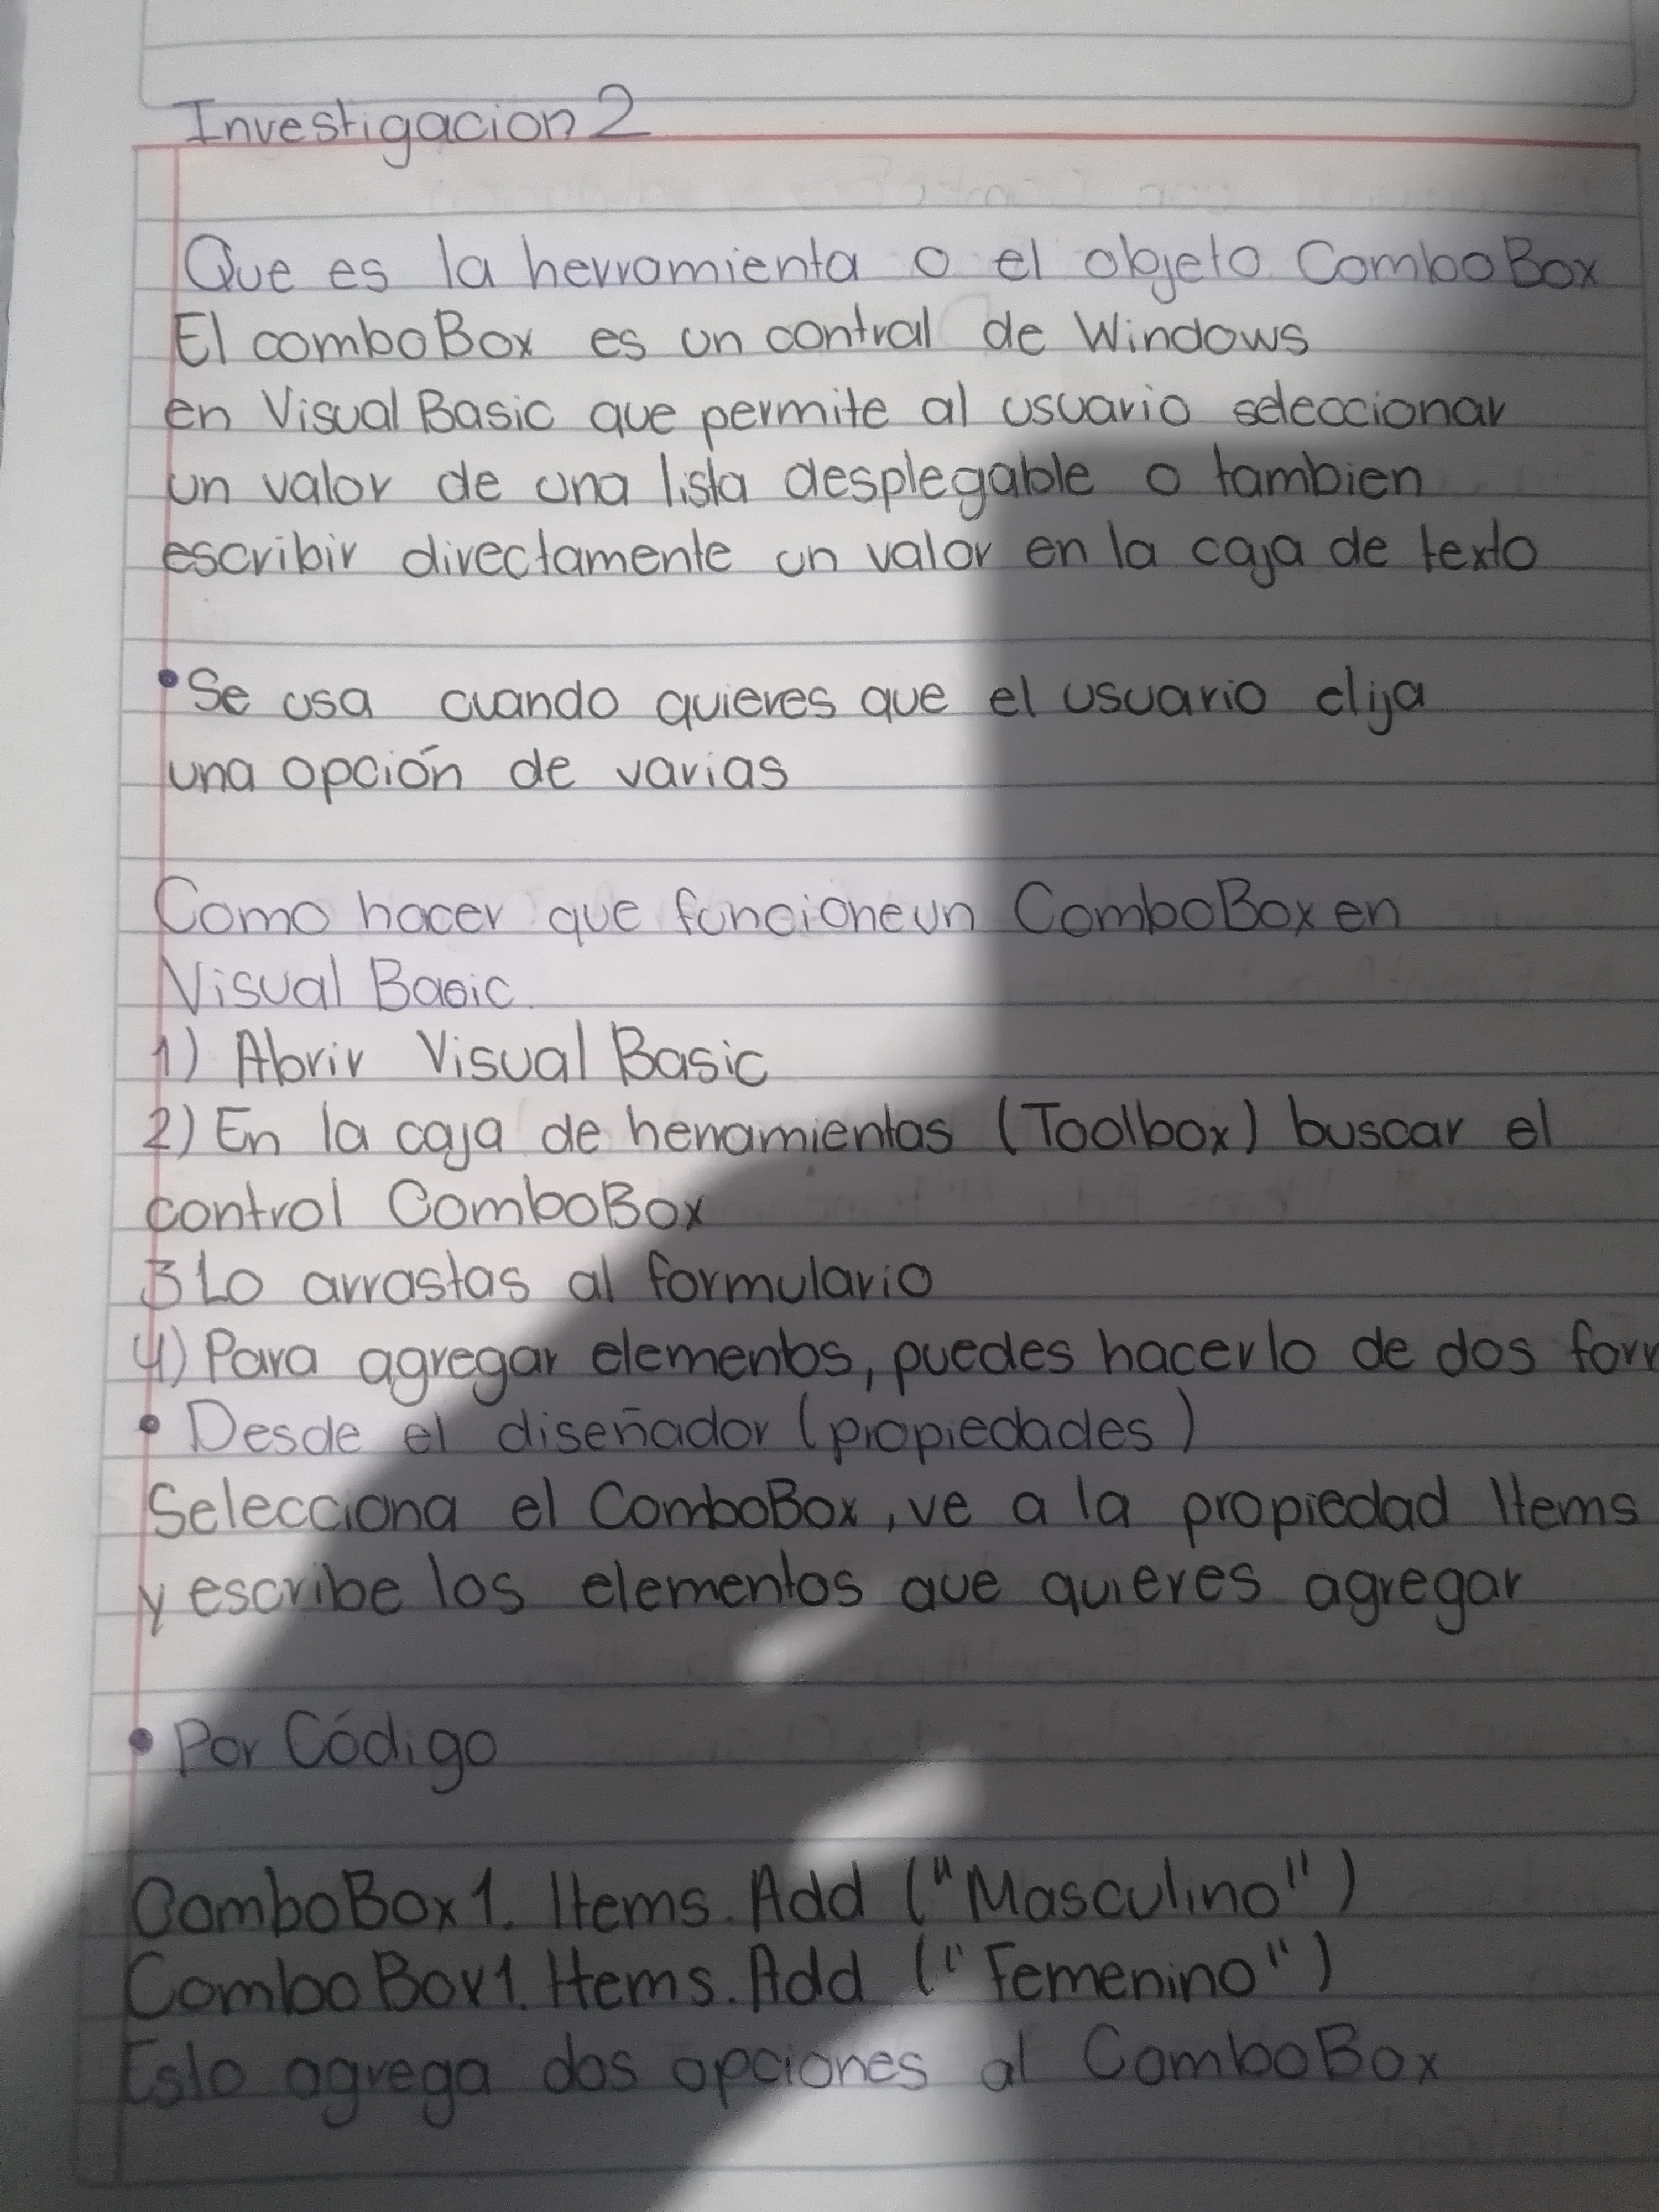 Investigacion 2
Que es la herramienta o el objeto ComboBox
El comboBox es un control de Windows
en Visual Basic que permite al usuario seleccionar
un valor de una lista desplegable o tambien
escribir directamente un valor en la caja de texto
•Se usa cuando quieres que el usuario elija
una opción de varias
Como hacer que funcione un ComboBox en
Visual Basic.
1) Abrir Visual Basic
2) En la caja de herramientas (Toolbox) buscar el
control ComboBox
3 Lo arrastas al formulario
4) Para agregar elementos, puedes hacerlo de dos
• Desde el diseñador (propiedades)
Selecciona el ComboBox, ve a la propiedad Items
y escribe los elementos que quieres agregar
• Por Código
ComboBox1. Items. Add ("Masculino")
ComboBox1. Items. Add ("Femenino")
Esto agrega dos opciones al ComboBox